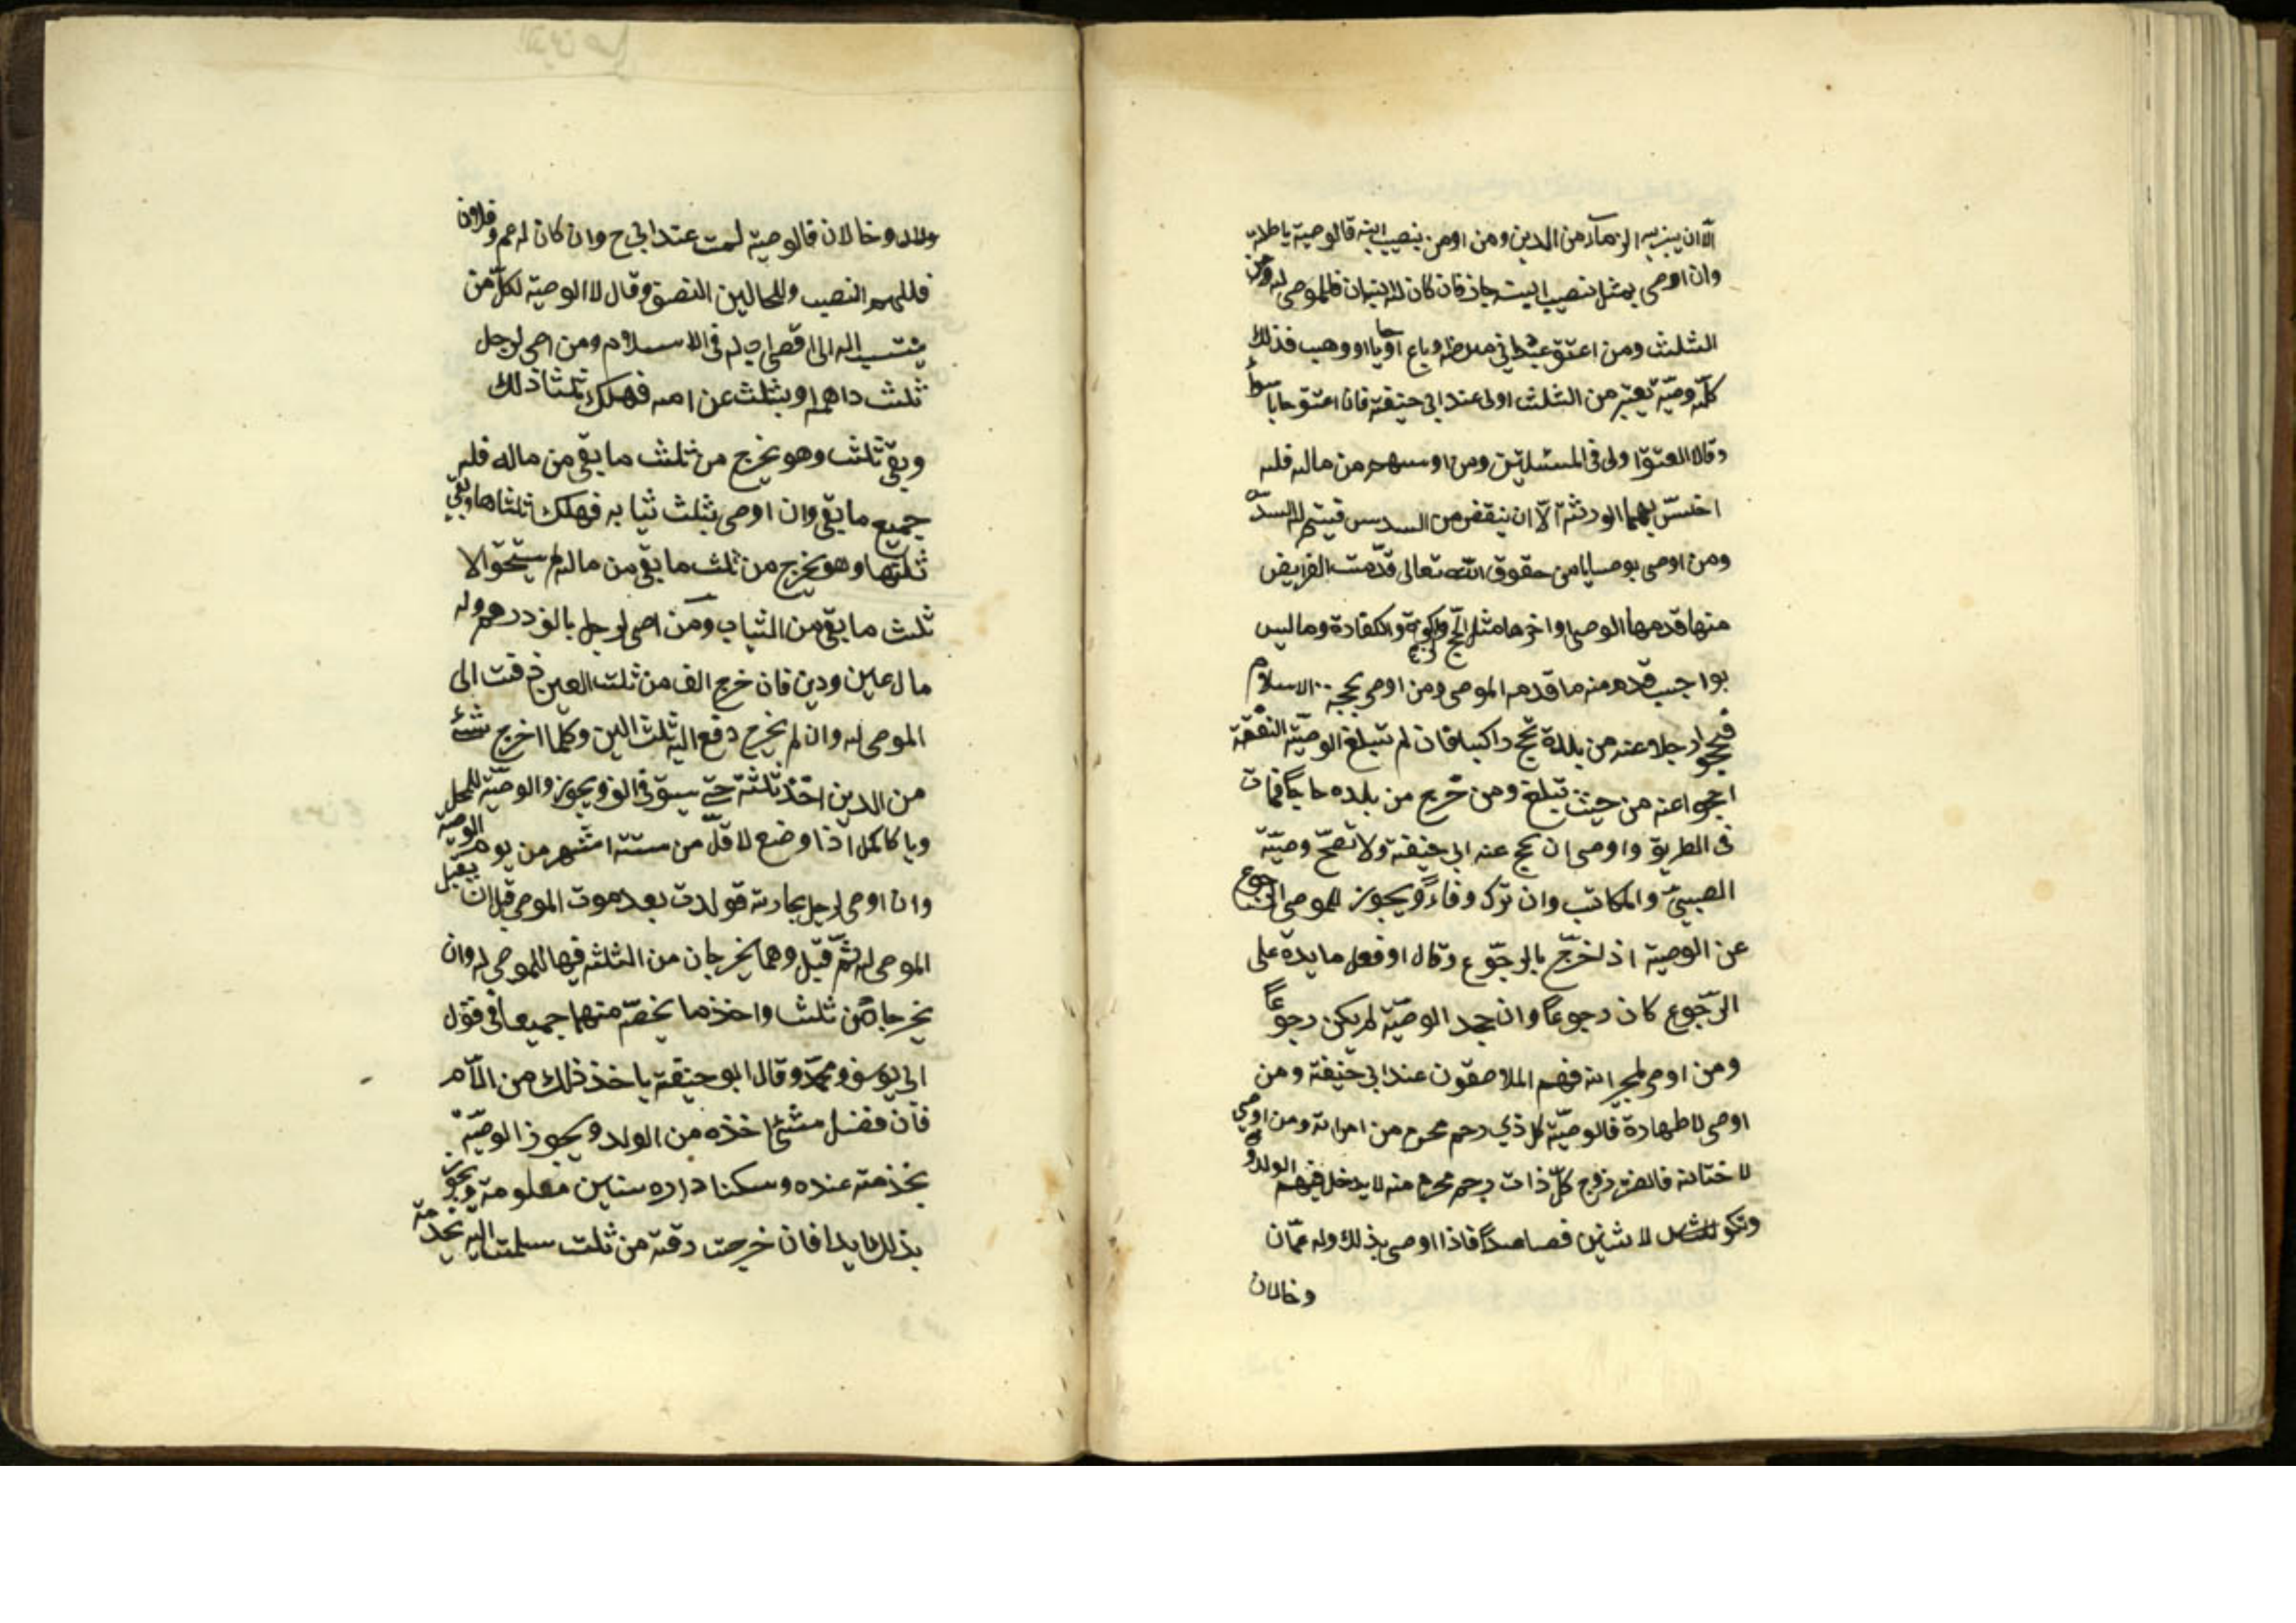 الّا ان يبزيه الزمآء من الدين ومن اوصى بنصيب ابنه فالوصية باطلة
وان اوصى بمثل نصيب ابنه جاز فان كان له ابنان فللموصى له ومن
الثلث ومن اعتق عبدا فى مرضه او باع او حابا او وهب فذلك
كلّه وصيّة يعتبر من الثلث اولى عند ابى حنيفة فان اعتق حابا سوآء
وقالا العتق اولى فى المسئلتين ومن او سهم من ماله فله
اخسّ سهما الورثة الّا ان ينقص من السدس فيتم له السدّ
ومن اوصى بوصايا من حقوق الله تعالى قدّمت الفرايض
منها قدمها الوصى او اخرها مثل الحج والزكوة والكفارة وما ليس
بواجب قدم منه ما قدمه الموصى ومن اوصى بحجة الاسلام
فيحجوا رجلا عنه من بلدة يحج راكبا فان لم تبلغ الوصيّة النفقة
احجوا عنه من حيث تبلغ ومن خرج من بلده حاجّا فمات
فى الطريق واوصى ان يحج عنه ابى حنيفة ولا تصحّ وصيّة
الصبىّ والمكاتب وان ترك وفاءً ويجوز للموصى الرجوع
عن الوصية اذا خرّج بالرجّوع وقال او فعل ما يدة على
الرّجوع كان رجوعًا وان جحد الوصيّة لم يكن رجوعًا
ومن اوصى لجيرانه فهم الملاصقون عند ابى حنيفة ومن
اوصى لاطهارة فالوصيّة كل ذي رحم محرم من امراته ومن اوصى
لاختانه فالختن زوج كلّ ذات رحم محرم منه لا يدخل فيهم الولد و
وتكو لاثنين فصاعدًا فاذا اوصى بذلك وله عمّان
وخالان
ولاد وخالان فالوصية لمت عند ابى ح وان كان له عم وخالان
فللعم النصب وللخالين النصف وقال لا الوصية لكلّ من
ينتسب اليه الى اقصى اب له فى الاسلام ومن اصى لرجل
ثلث داهمه او بثلث عن امه فهلك ثلثا ذلك
وبقى ثلث وهو يخرج من ثلث ما بقى من ماله فله
جميع ما بقى وان اوصى بثلث ثيابه فهلك ثلثاها وبقى
ثلثها وهو يخرج من ثلث ما بقى من ماله لم يستحق الا
ثلث ما بقى من الثياب ومن اصى لرجل بالف درهم وله
مال عين ودين فان خرج الف من ثلث العين دفعت الى
الموصى له وان لم يخرج دفع اليه ثلث العين وكلما اخرج شئ
من الدين اخذ ثلثه حتى يستوفى الف ويجوز والوصيّة للحمل
وبا كا كمل اذا وضع لاقلّ من ستة اشهر من يوم الوصية
وان اوصى لرجل بجارية فولدت بعد موت الموصى قبل ان يقبل
الموصى له ثمّ قبل وهما يخرجان من الثلثه فيها للموصى له وان
يخرجا من ثلث واخذ ما يخصّه منهما جميعا فى قول
ابى يوسف ومحمّد وقال ابو حنيفة ياخذ ذلك من الامّ
فان فضل شئ اخذه من الولد ويجوز الوصيّة
بخذمته عنده وسكنا داره سنين معلومة ويجوّز
بذلك ابدا فان خرجت رقبة من ثلث سلمت اليه بخدمة